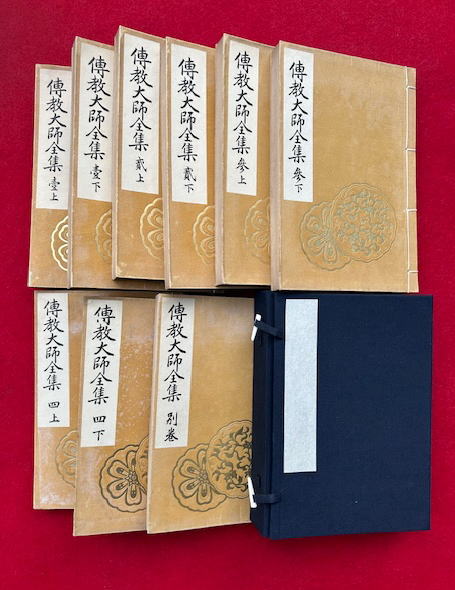 傳教大師全集 壹上
傳教大師全集 壹下
傳教大師全集 貳上
傳教大師全集 貳下
傳教大師全集 參上
傳教大師全集 參下
傳教大師全集 四上
傳教大師全集 四下
傳教大師全集 別卷